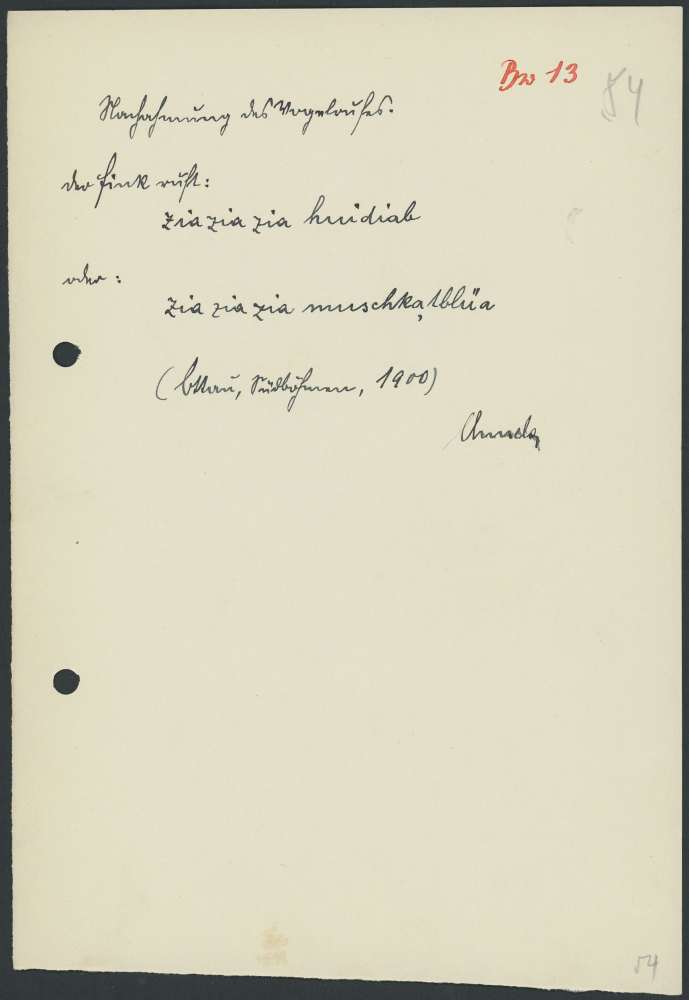 Bw 13
54
Nachahmung des Vogelrufes.
der Fink ruft:
zia zia zia huidiab
oder:
zia zia zia muschkatblüa
(Ottau, Südböhmen, 1900)
54